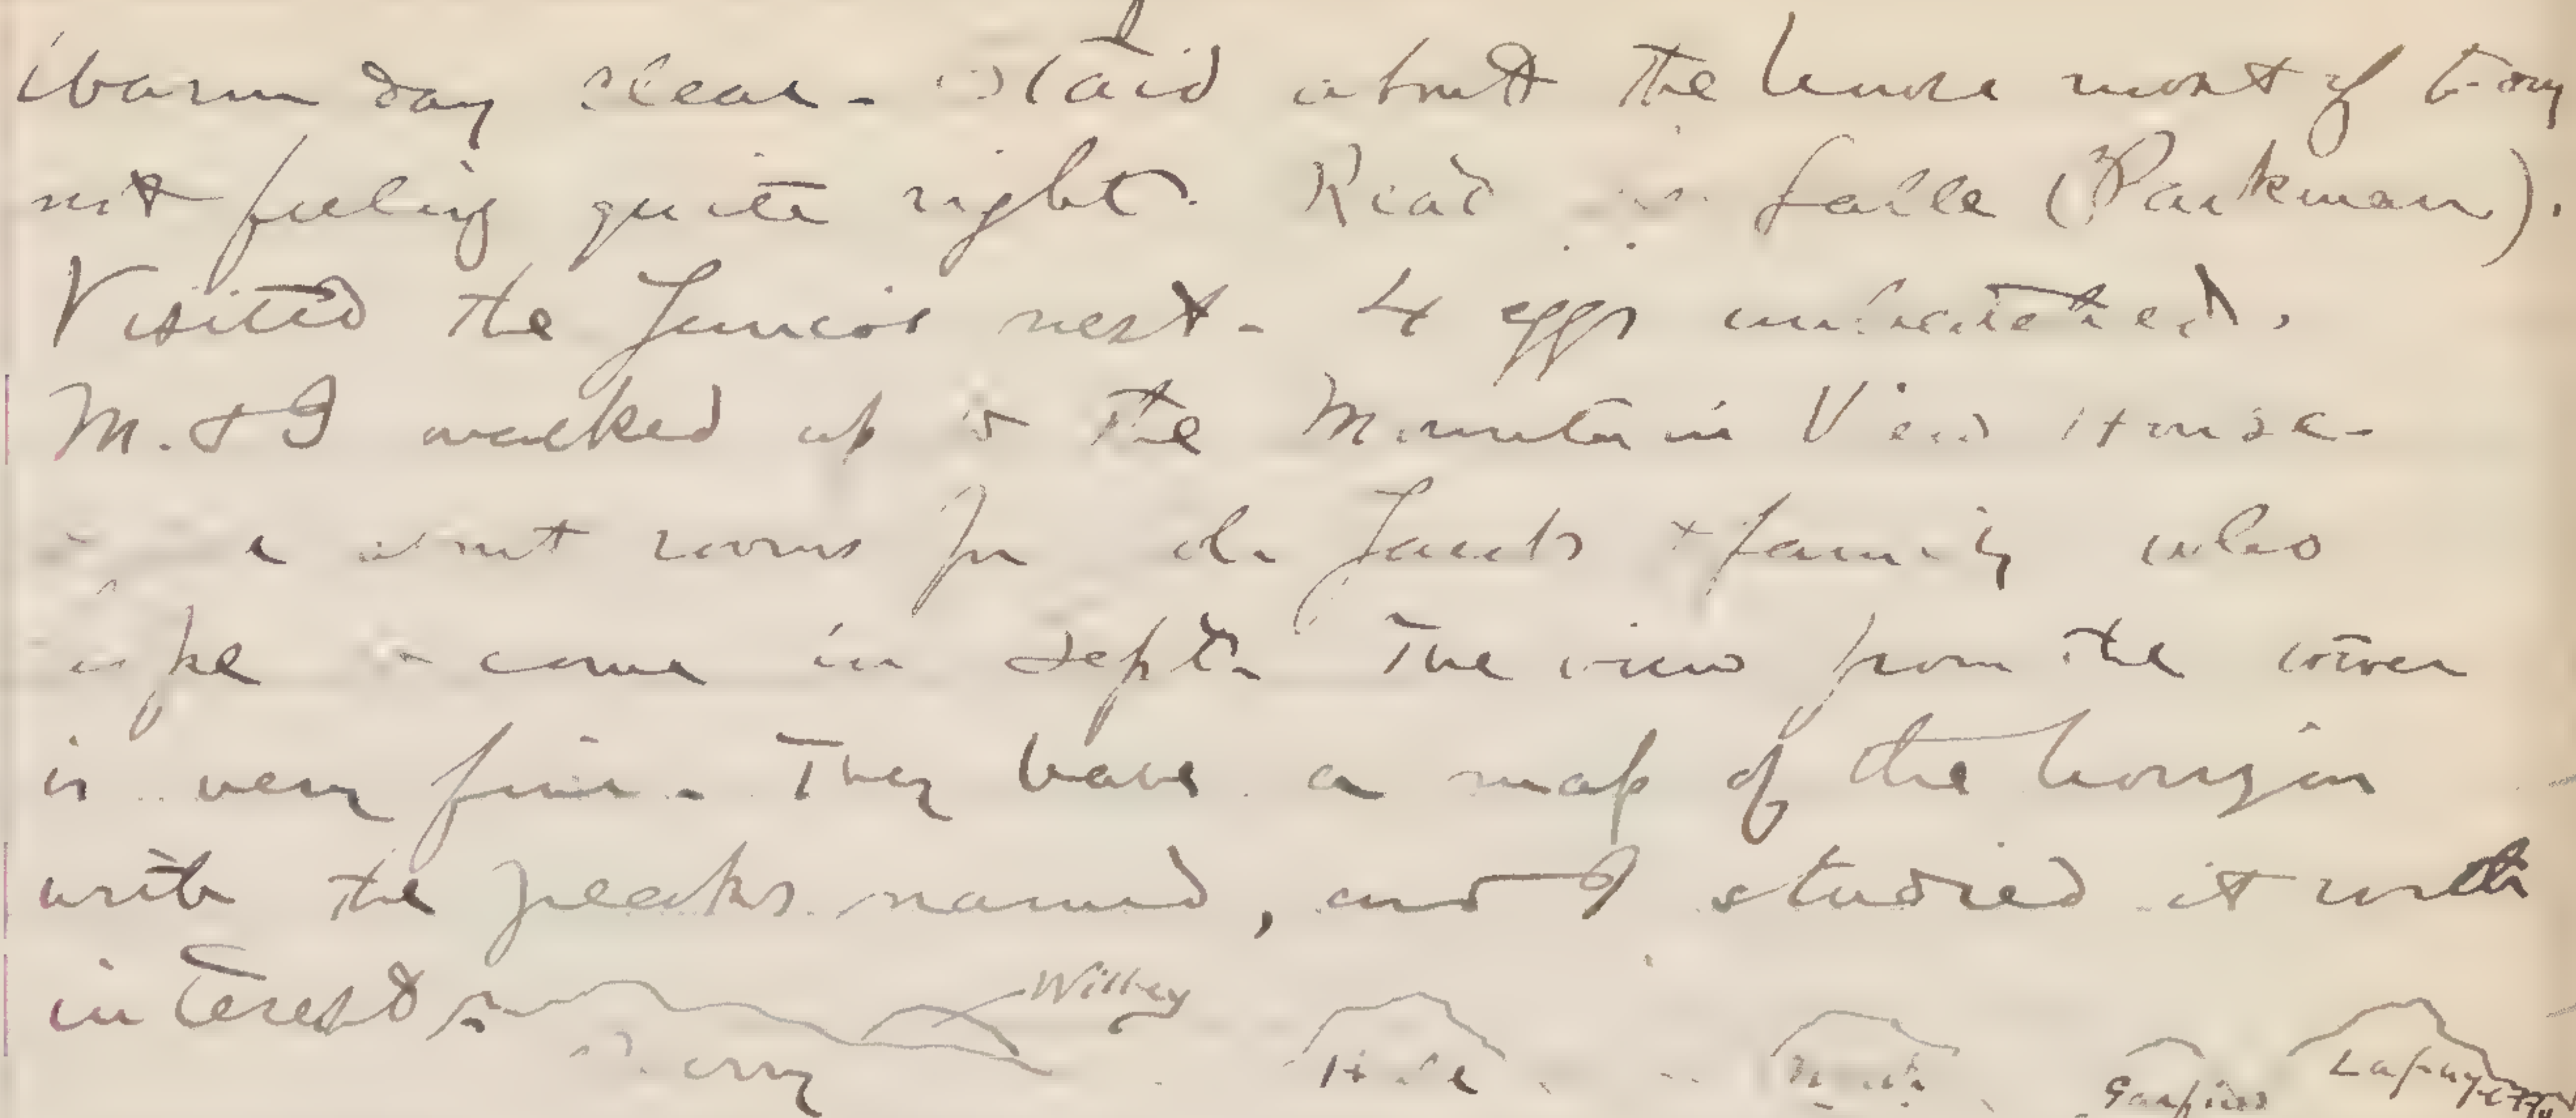 Warm day clear - Staid about the house most of to-day
not feeling quite right. Read La Salle (Parkman).
Visited the Junco's nest - 4 eggs unhatched.
M. & I walked up to the Mountain View House -
about rooms for Jacob & family who
hope to come in Sept. The view from the tower
is very fine. They have a map of the horizon
with the peaks named, and I studied it with
interest.
Willey
Hale
Garfield
Lafayette